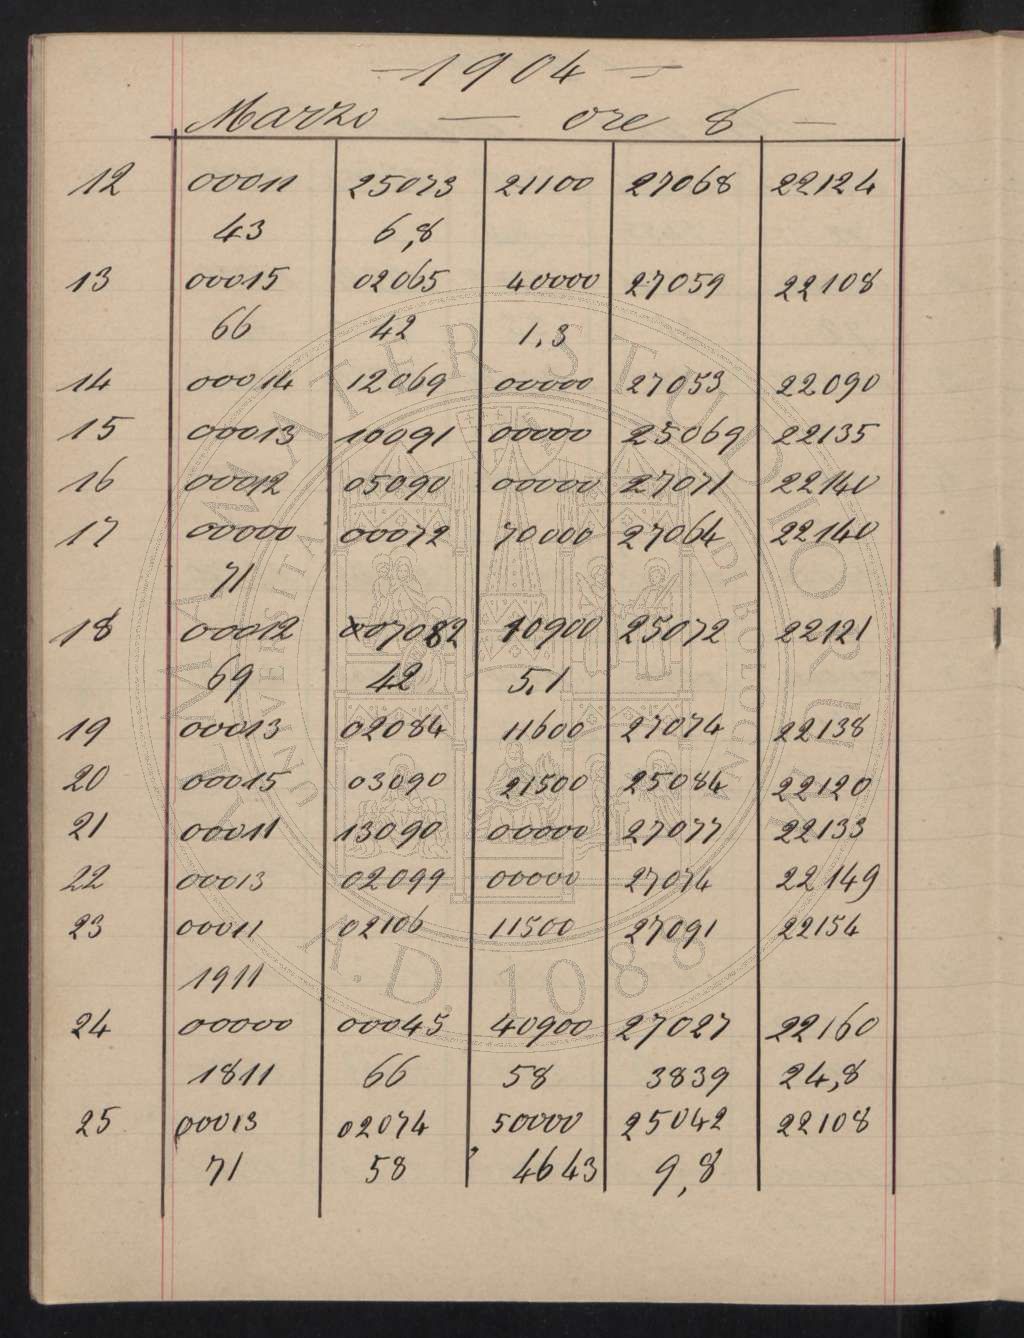 — 1904 —
Marzo — ore 8 —
12 00011 25073 21100 27068 22124
43 6,8
13 00015 02065 40000 27059 22108
66 42 1,3
14 00014 12069 00000 27053 22090
15 00013 10091 00000 25069 22135
16 00012 05090 00000 27071 22140
17 00000 00072 70000 27064 22140
71
18 00012 07082 10900 25072 22121
69 42 5,1
19 00013 02084 11600 27074 22138
20 00015 03090 21500 25084 22120
21 00011 13090 00000 27077 22133
22 00013 02099 00000 27074 22149
23 00011 02106 11500 27091 22154
1911
24 00000 00045 40900 27027 22160
1811 66 58 3839 24,8
25 00013 02074 50000 25042 22108
71 58 4643 9,8
ALMA MATER STUDIORUM
A.D. 1088